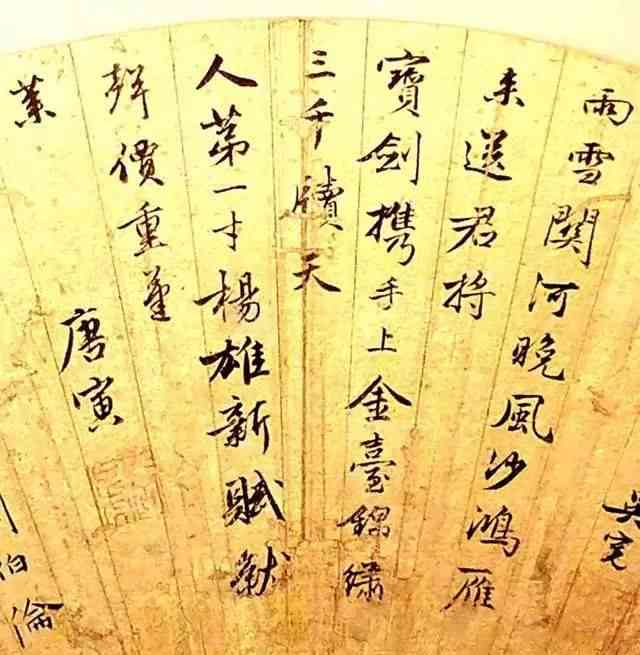 雨雪關河晚風沙鴻雁
來送君將
寶劍攜手上金臺錦繡
三千牘天
人第一才楊雄新賦獻
聲價重蓬
萊
唐寅
伯倫